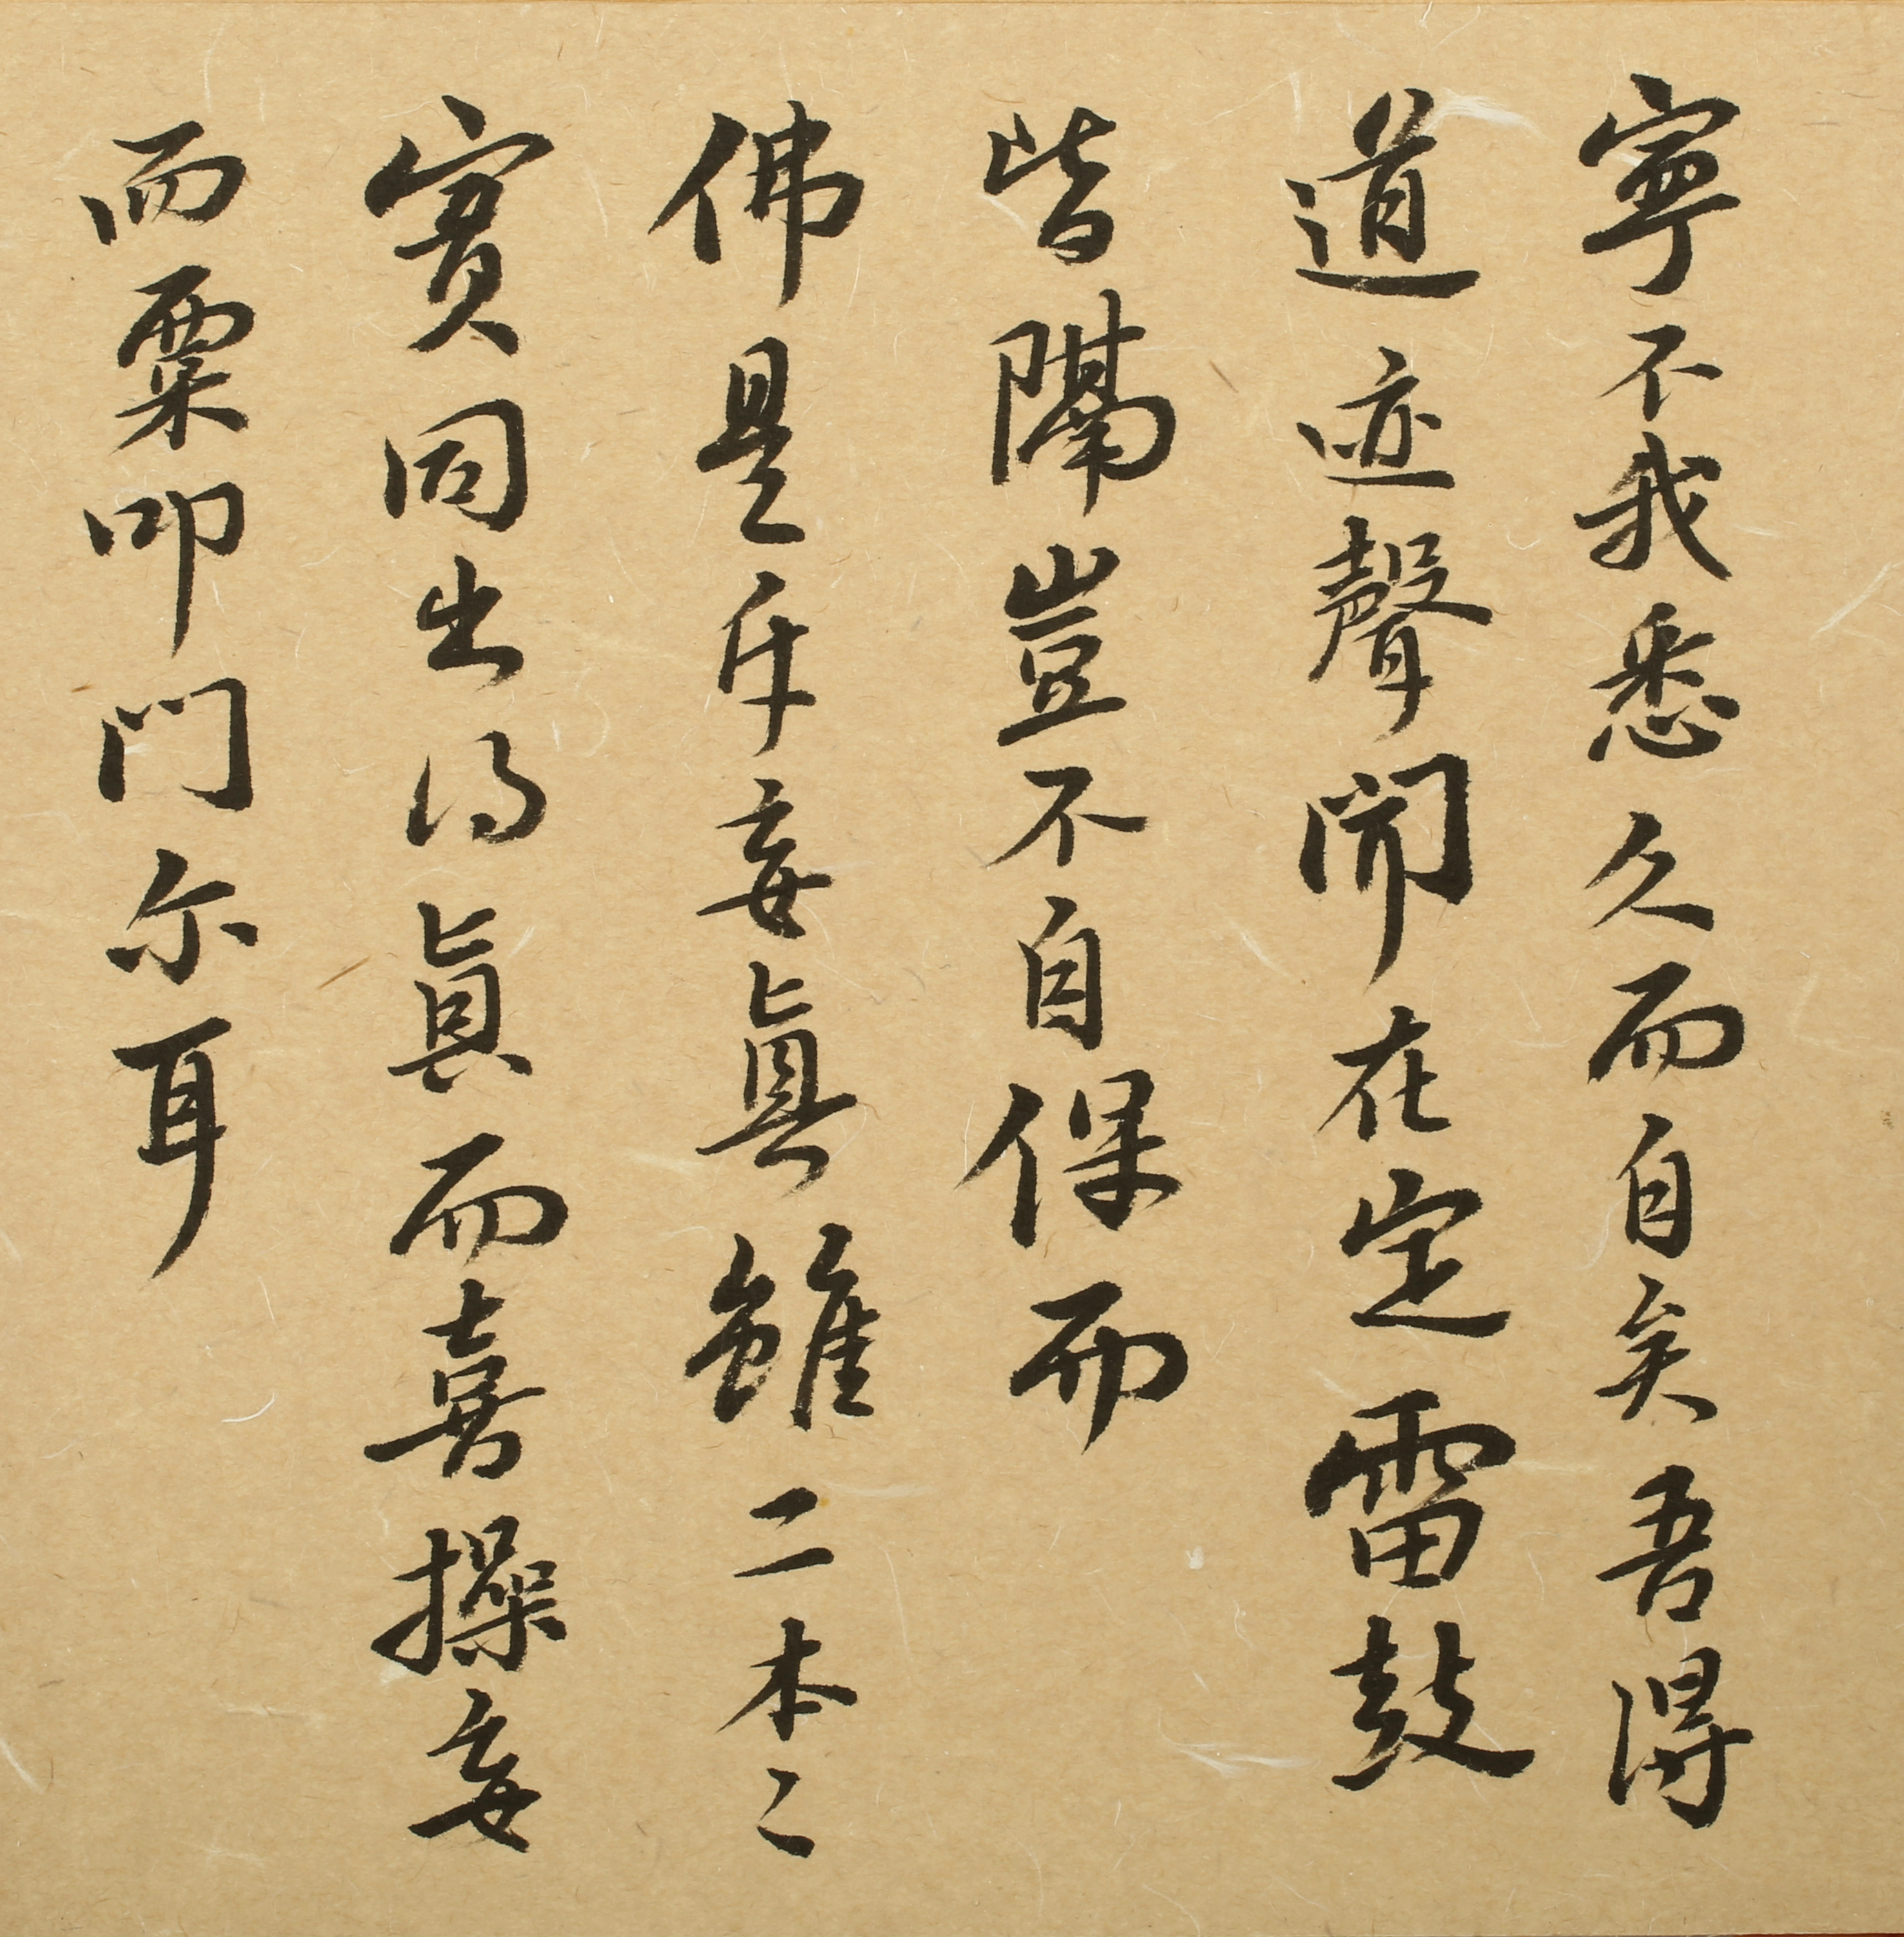 寧不我悉久而自矣吾得
道迹聲聞在定雷鼓
皆隔豈不自保而
佛是斥妄真雖二本二
實同出得真而喜操妄
而粟叩门尔耳